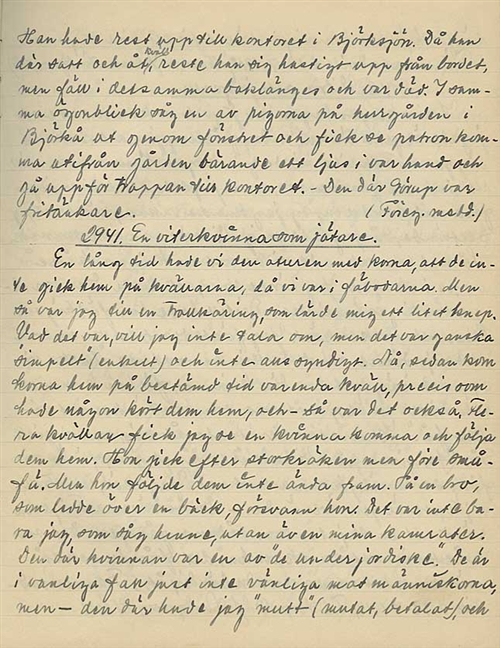 Han hade rest upp till kontoret i Björksjön. Då han
kväll
där satt och åt, reste han sig hastigt upp från bordet,
men föll i detsamma baklänges och var död. I sam-
ma ögonblick såg en av pigorna på herrgården i
Björkå ut genom fönstret och fick se patron kom-
ma utifrån gården bärande ett ljus i var hand och
gå uppför trappan till kontoret. - Den där Görup var
fritänkare. (Föreg. medd.)
2941. En viterkvinna som jätare.
En lång tid hade vi den oturen med korna, att de in-
te gick hem på kvällarna, då vi var i fäbodarna. Men
så var jag till en Trollkäring, som lärde mig ett litet knep.
Vad det var, vill jag inte tala om, men det var ganska
simpelt (enkelt) och inte alls syndigt. Nå, sedan kom
korna hem på bestämd tid varenda kväll, precis som
hade någon kört dem hem, och - så var det också. Fle-
ra kvällar fick jag se en kvinna komma och följa
dem hem. Hon gick efter storkräken men före små-
fä. Men hon följde dem inte ända fram. På en bro,
som ledde över en bäck, försvann hon. Det var inte ba-
ra jag, som såg henne, utan även mina kamrater.
Den där kvinnan var en av "de underjordiske". De är
i vanliga fall just inte vänliga mot människorna,
men - den där hade jag "mutt" (mutat, betalat), och